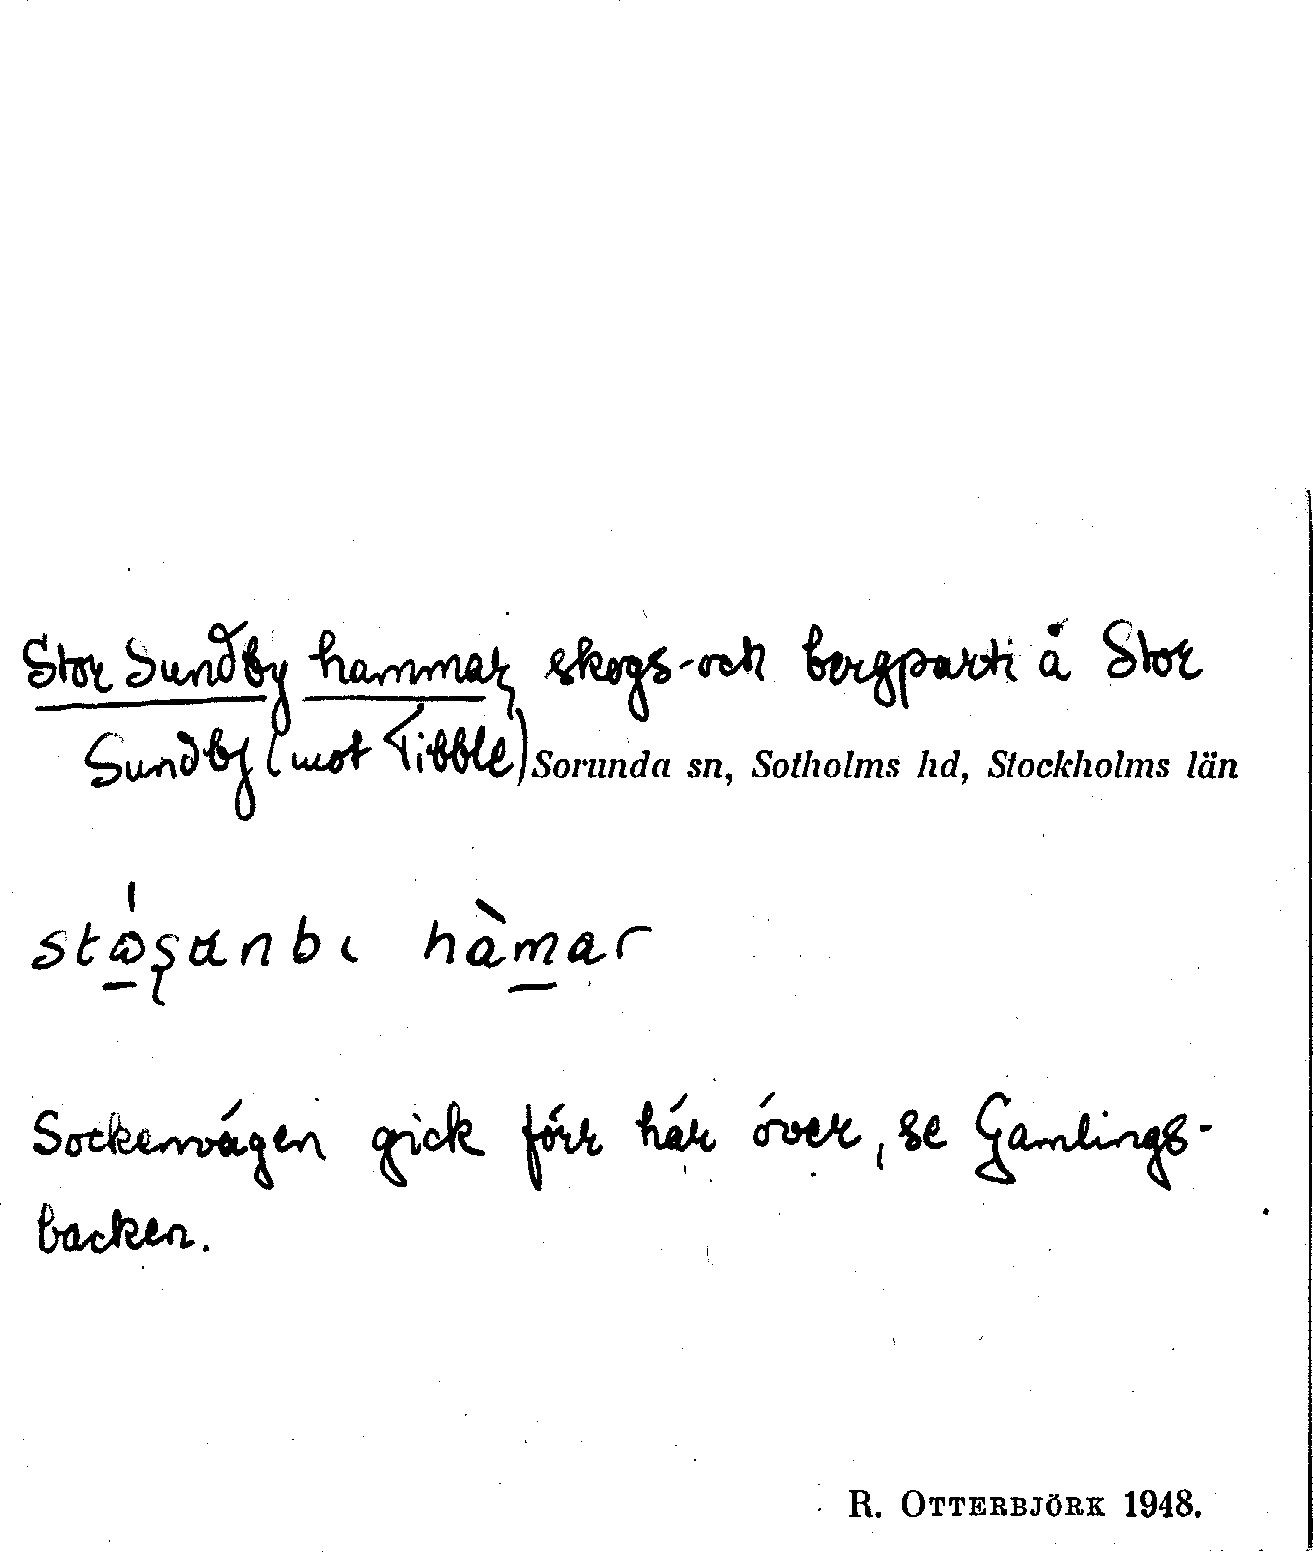 Stor Sundby hammar, skogs- och bergparti å Stor
Sundby (mot Tibble) Sorunda sn, Sotholms hd, Stockholms län
hàmar
Sockenvägen gick förr här över, se Gamlings-
backen.
R. OTTERBJÖRK 1948.